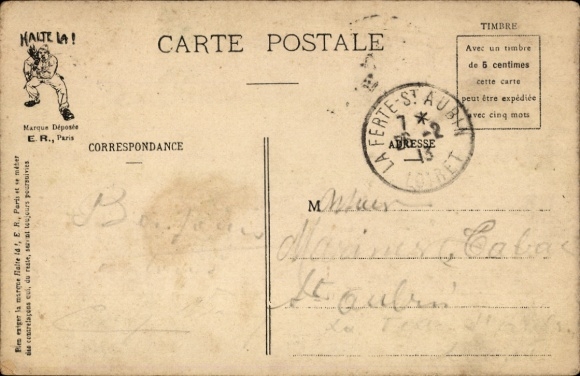 HALTE LÀ !
Marque Déposée
E. R., Paris
CARTE POSTALE
TIMBRE
Avec un timbre
de 5 centimes
cette carte
peut être expédiée
avec cinq mots
LA FERTE-ST AUBIN
7 *
-2
13
LOIRET
CORRESPONDANCE
ADRESSE
Bien exiger la marque Halte là !, E. R., Paris et se méfier
des contrefaçons qui, du reste, seront toujours poursuivies
Bonjour
M
St Aubin